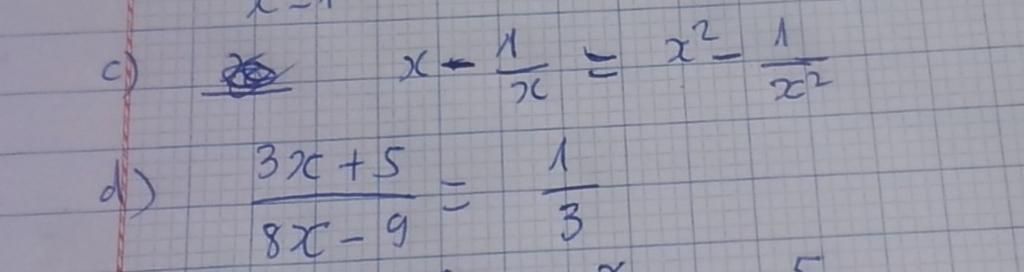 c) x - 1/x = x² - 1/x²
d) (3x + 5)/(8x - 9) = 1/3